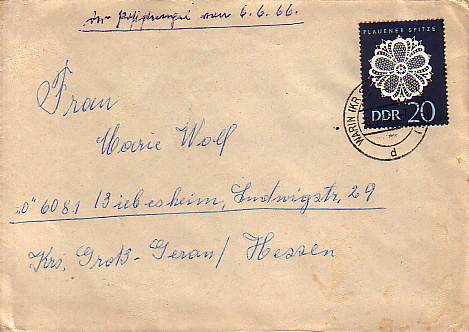 von 6.6.66.
PLAUENER SPITZE
DDR 20
WARIN (KR
d
Frau
Marie Wolf
"D" 6081 Biebesheim, Ludwigstr. 29
Krs. Groß-Gerau/Hessen